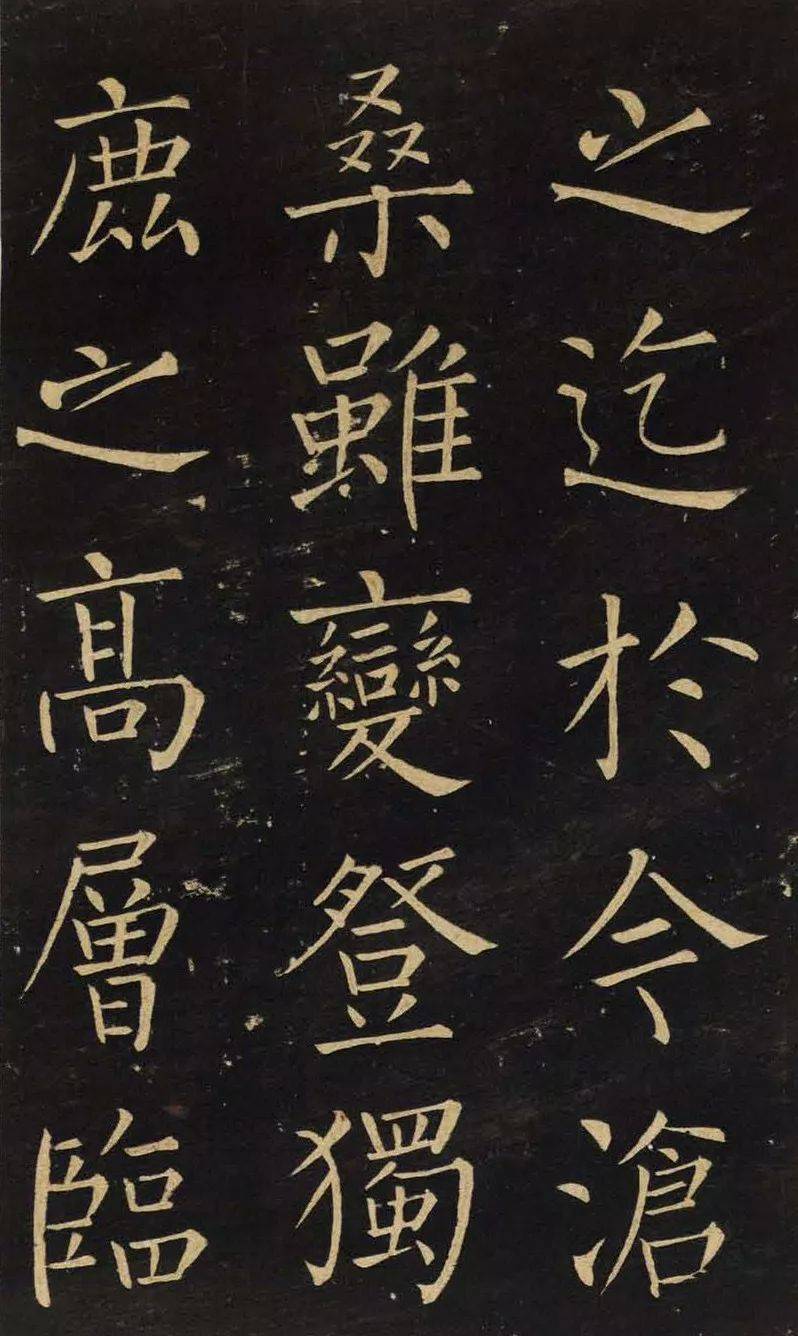 之迄於今滄
桑雖變登獨
鹿之髙層臨